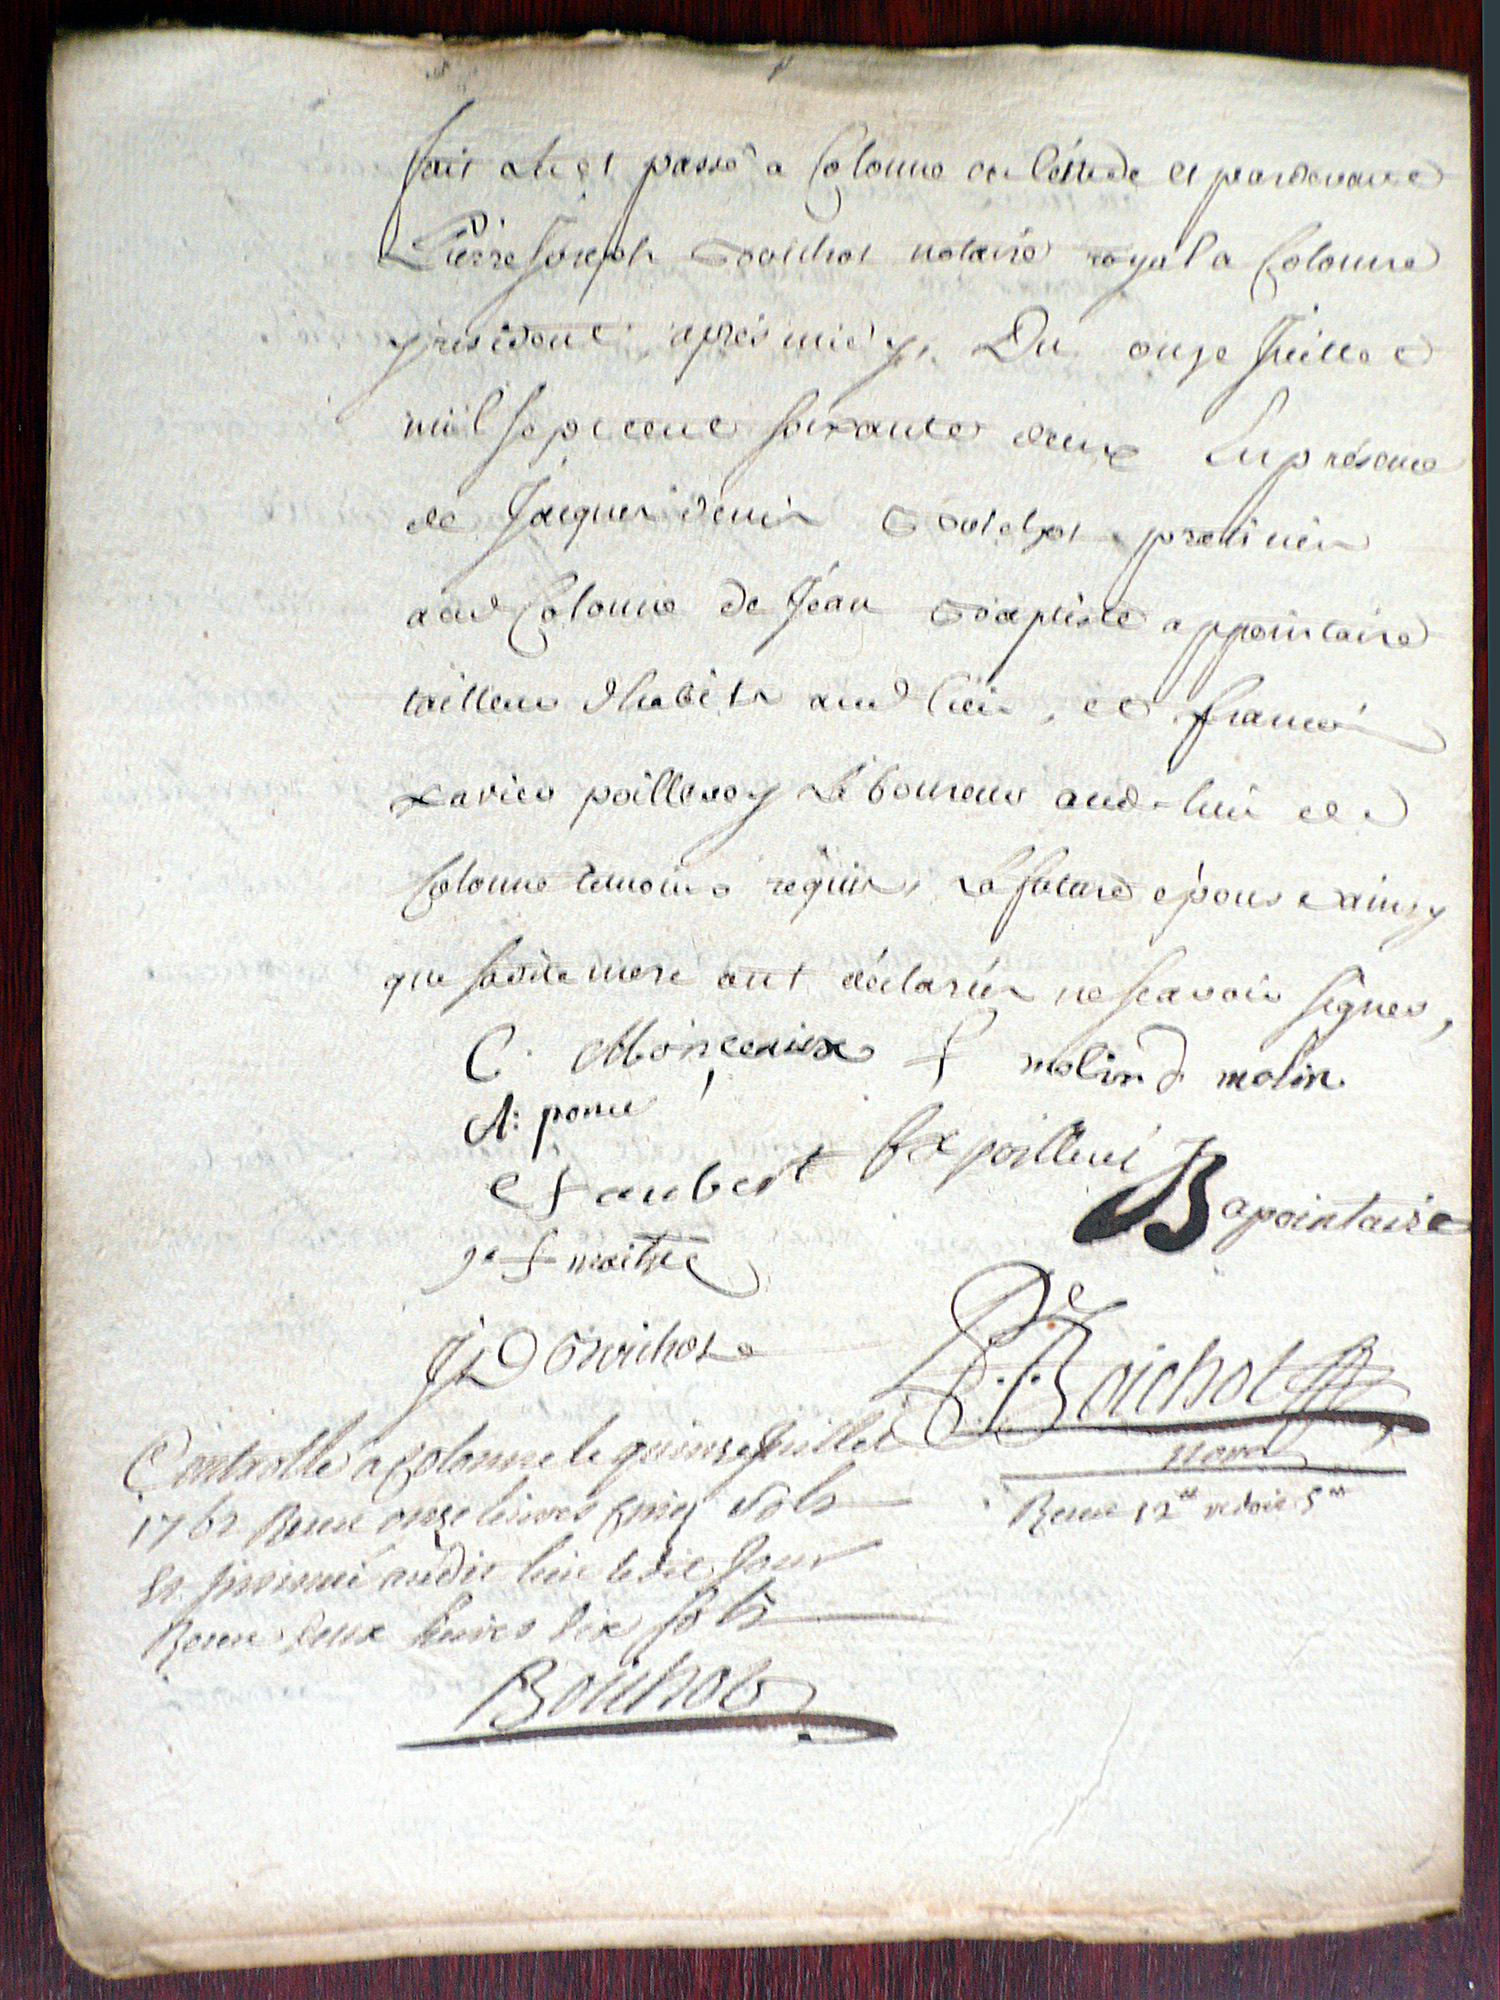 fait lu et passé a Colonne en l'étude et pardevant
Pierre Joseph Boichot notaire royal a Colonne
y résident après midy, Du onze Juillet
mil sept cent soixante deux En présence
de Jacques denis Boichot praticien
aud Colonne de Jéan Baptiste appointaire
tailleur d'habits aud lieu, et francois
xavier poillevey laboureur aud lieu de
Colonne temoins requis, la future épouse ainsy
que sadite mere ont déclarés ne scavoir signer,
C. Monceaux f molin d molin
A: ponce
f x poillevé
C f aubert
JB apointaire
f maitre
JD Boichot
P. J. Boichot
nore
Controllé a Colonne le quinze Juillet
1762 Receu onze livres cinq sols
Et insinué audit lieu ledit Jour
Receu deux livres dix sols
Receu 12
Boichot